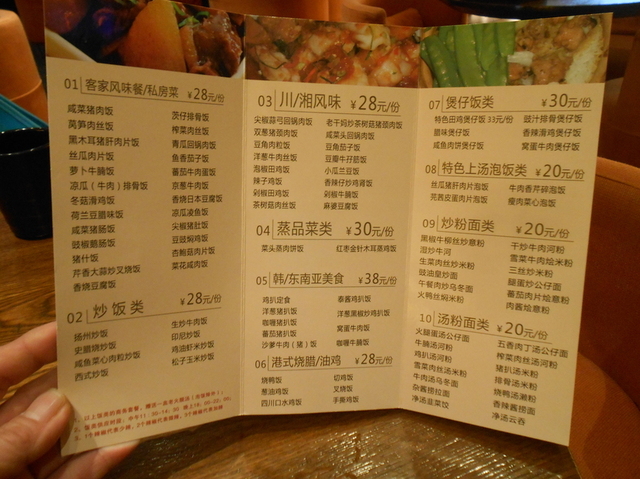 01 客家风味餐/私房菜 ¥28元/份
咸菜猪肉饭
莴笋肉丝饭
黑木耳猪肝肉片饭
丝瓜肉片饭
萝卜牛腩饭
凉瓜（牛肉）排骨饭
冬菇滑鸡饭
荷兰豆腊味饭
咸菜猪肠饭
豉椒鹅肠饭
猪什饭
芹香大蒜炒叉烧饭
香烧豆腐饭
茨仔排骨饭
榨菜肉丝饭
青瓜回锅肉饭
鱼香茄子饭
番茄牛肉蛋饭
京葱牛肉饭
香烧日本豆腐饭
凉瓜凌鱼饭
尖椒猪肚饭
豆豉焖鸡饭
杏鲍菇肉片饭
菜花咸肉饭
02 炒饭类 ¥28元/份
扬州炒饭
史腿烧炒饭
咸鱼菜心肉粒炒饭
西式炒饭
生炒牛肉饭
印尼炒饭
鸡油虾米炒饭
松子玉米炒饭
03 川/湘风味 ¥28元/份
尖椒蒜弓回锅肉饭
双葱猪颈肉饭
豆角肉粒饭
洋葱牛肉丝饭
泡椒田鸡饭
辣子鸡饭
剁椒田鸡饭
茶树菇肉丝饭
老干妈炒茶树菇猪颈肉饭
咸菜头回锅肉饭
豆角茄子饭
豆瓣牛孖筋饭
小瓜兰豆饭
香辣仔炒鸡肾饭
剁椒牛腩饭
麻婆豆腐饭
04 蒸品菜类 ¥30元/份
菜头蒸肉饼饭
红枣金针木耳蒸鸡饭
05 韩/东南亚美食 ¥38元/份
鸡扒定食
洋葱猪扒饭
咖喱猪扒饭
番茄猪扒饭
沙爹牛肉（猪）饭
泰酱鸡扒饭
洋葱黑椒炒鸡扒饭
窝蛋牛肉饭
咖喱牛腩饭
06 港式烧腊/油鸡 ¥28元/份
烧鸭饭
葱油鸡饭
四川口水鸡饭
切鸡饭
叉烧饭
手撕鸡饭
07 煲仔饭类 ¥30元/份
特色田鸡煲仔饭 33元/份
腊味煲仔饭
咸鱼肉饼煲仔饭
豉汁排骨煲仔饭
香辣滑鸡煲仔饭
窝蛋牛肉煲仔饭
08 特色上汤泡饭类 ¥20元/份
丝瓜猪肝肉片泡饭
芫茜皮蛋肉片泡饭
牛肉香芹碎泡饭
瘦肉菜心泡饭
09 炒粉面类 ¥20元/份
黑椒牛柳丝炒意粉
湿炒牛河
生菜肉丝炒米粉
豉油皇炒面
午餐肉炒乌冬面
火鸭丝焖米粉
干炒牛肉河粉
雪菜牛肉烩米粉
三丝炒米粉
腿蛋炒公仔面
番茄肉片烩意粉
肉酱烩意粉
10 汤粉面类 ¥20元/份
火腿蛋汤公仔面
牛腩汤河粉
鸡扒汤河粉
雪菜肉丝汤米粉
牛肉汤乌冬面
杂酱捞拉面
净汤韭菜饺
五香肉丁汤公仔面
榨菜肉丝汤河粉
猪扒汤米粉
排骨汤米粉
烧鸭汤濑粉
香辣酱捞面
净汤云吞